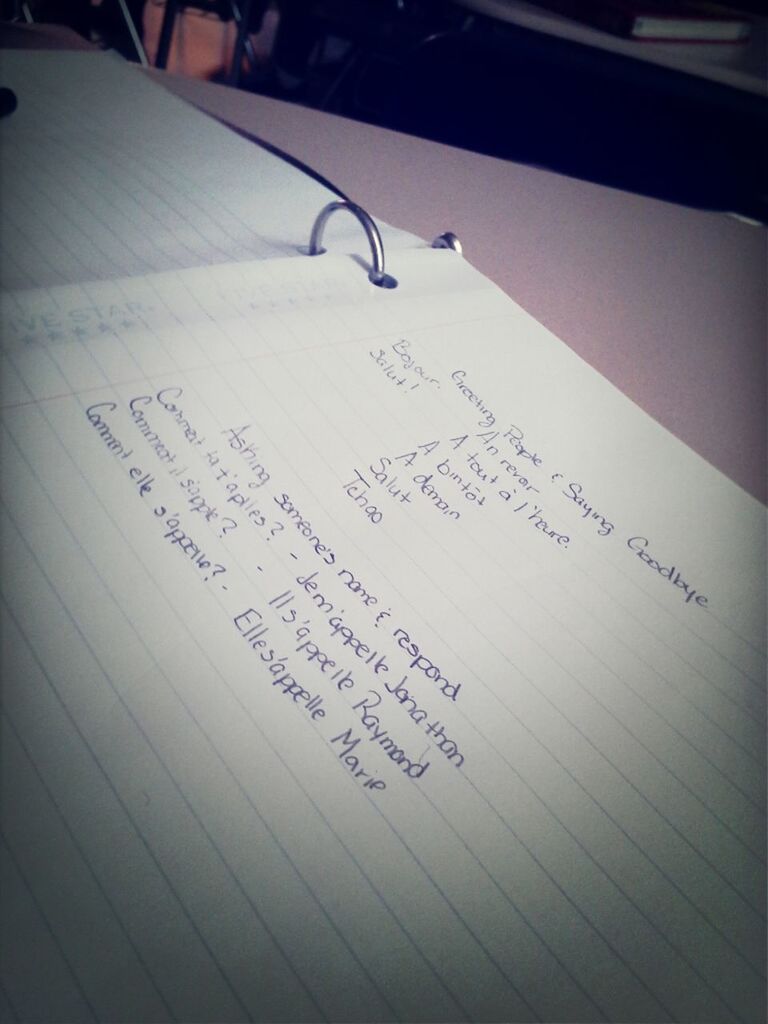 IVE STAR.
FIVE STAR
Greeting People & Saying Goodbye
Bojour.
Salut!
An revoir
A tout à l'heure.
A bintôt
A demain
Salut
Tchao
Asking someone's name & respond
Comment tu t'aplles? - Jem'appelle Jonathan
Comment il s'apple? - Il s'appelle Raymond
Commnt elle s'appelle? - Elle s'appelle Marie